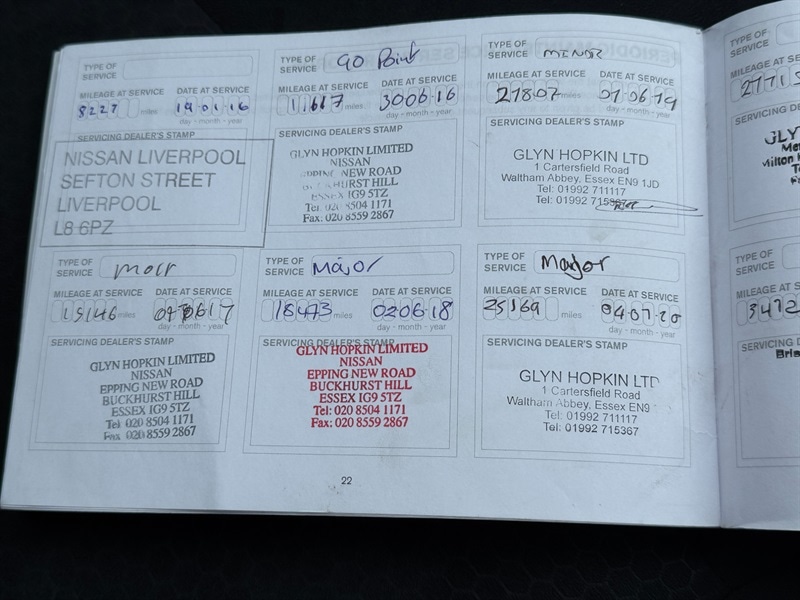 TYPE OF SERVICE
MILEAGE AT SERVICE DATE AT SERVICE
8227 miles 19 01 16
day - month - year
SERVICING DEALER'S STAMP
NISSAN LIVERPOOL
SEFTON STREET
LIVERPOOL
L8 6PZ
TYPE OF SERVICE 90 Point
MILEAGE AT SERVICE DATE AT SERVICE
11667 miles 30 06 16
day - month - year
SERVICING DEALER'S STAMP
GLYN HOPKIN LIMITED
NISSAN
EPPING NEW ROAD
BUCKHURST HILL
ESSEX IG9 5TZ
Tel: 020 8504 1171
Fax: 020 8559 2867
TYPE OF SERVICE MINOR
MILEAGE AT SERVICE DATE AT SERVICE
21807 miles 07 06 19
day - month - year
SERVICING DEALER'S STAMP
GLYN HOPKIN LTD
1 Cartersfield Road
Waltham Abbey, Essex EN9 1JD
Tel: 01992 711117
Tel: 01992 715367
TYPE OF SERVICE
MILEAGE AT SERVICE DATE AT SERVICE
15146 miles 07 06 17
day - month - year
SERVICING DEALER'S STAMP
GLYN HOPKIN LIMITED
NISSAN
EPPING NEW ROAD
BUCKHURST HILL
ESSEX IG9 5TZ
Tel: 020 8504 1171
Fax 020 8559 2867
TYPE OF SERVICE MAJOR
MILEAGE AT SERVICE DATE AT SERVICE
18473 miles 02 06 18
day - month - year
SERVICING DEALER'S STAMP
GLYN HOPKIN LIMITED
NISSAN
EPPING NEW ROAD
BUCKHURST HILL
ESSEX IG9 5TZ
Tel: 020 8504 1171
Fax: 020 8559 2867
TYPE OF SERVICE Major
MILEAGE AT SERVICE DATE AT SERVICE
25169 miles 04 07 20
day - month - year
SERVICING DEALER'S STAMP
GLYN HOPKIN LTD
1 Cartersfield Road
Waltham Abbey, Essex EN9
Tel: 01992 711117
Tel: 01992 715367
22
TYPE OF SERVICE
MILEAGE AT
2771
SERVICING DE
GLY
Milton
TYPE OF SERVICE
MILEAGE AT S
3472
SERVICING D
Bris